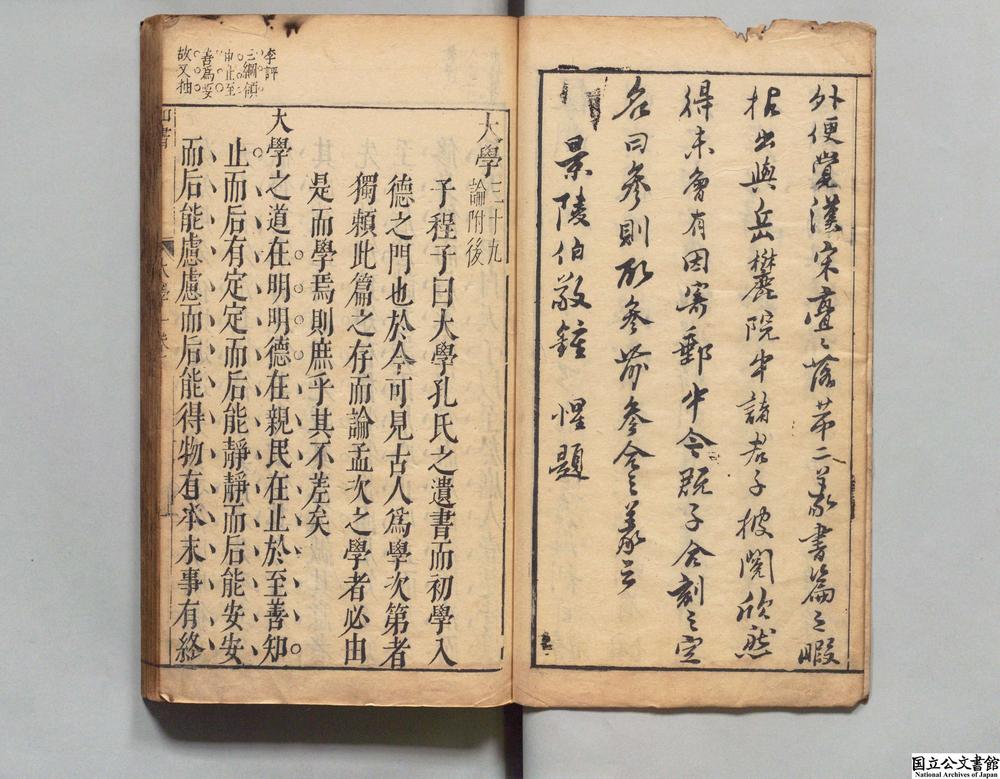 外便覺漢宋亹亹落第二義書篇之暇
拈出與岳麓院中諸君子披閱欣然
得未曾有因寄郵中今既子合刻之定
名曰參則取參前參倉之義云
景陵伯敬鍾惺題
李評
三綱領
中止至
善為要
故又抽
大學 三十九
論附後
子程子曰大學孔氏之遺書而初學入
德之門也於今可見古人為學次第者
獨賴此篇之存而論孟次之學者必由
是而學焉則庶乎其不差矣
大學之道在明明德在親民在止於至善知
止而后有定定而后能靜靜而后能安安
而后能慮慮而后能得物有本末事有終
四書
大學
国立公文書館
National Archives of Japan